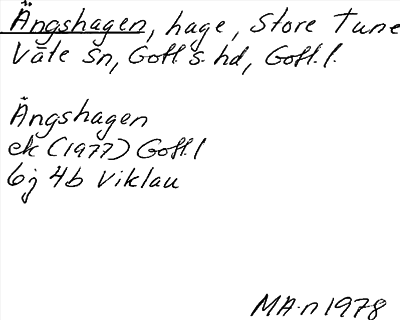 Ängshagen, hage, Store Tune
Väte sn, Gotl. s. hd, Gotl. l.
Ängshagen
ek (1977) Gotl. l
6j 4b Viklau
MA-n 1978